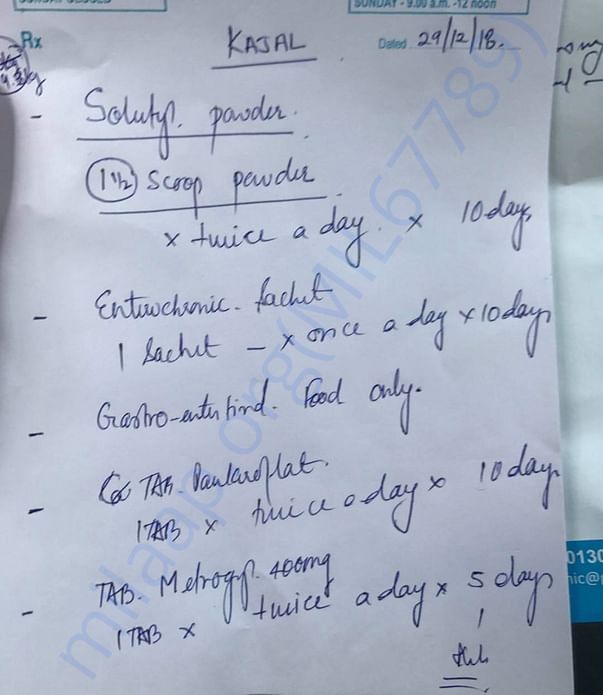 SUNDAY - 9.00 a.m. -12 noon
Rx
KAJAL
Dated 29/12/18.
kg
- Solutyl. powder.
1 1/2 Scoop powder
x twice a day. x 10 days
- Enterochronic. Sachet
1 Sachet - x once a day x 10 days
- Gastro-enter kind. Food only.
- TAB. Pantaroflat.
1 TAB x twice a day x 10 days
- TAB. Metrogyl. 400mg
1 TAB x twice a day x 5 days
0130
nic@
milaap.org(MIL67789)